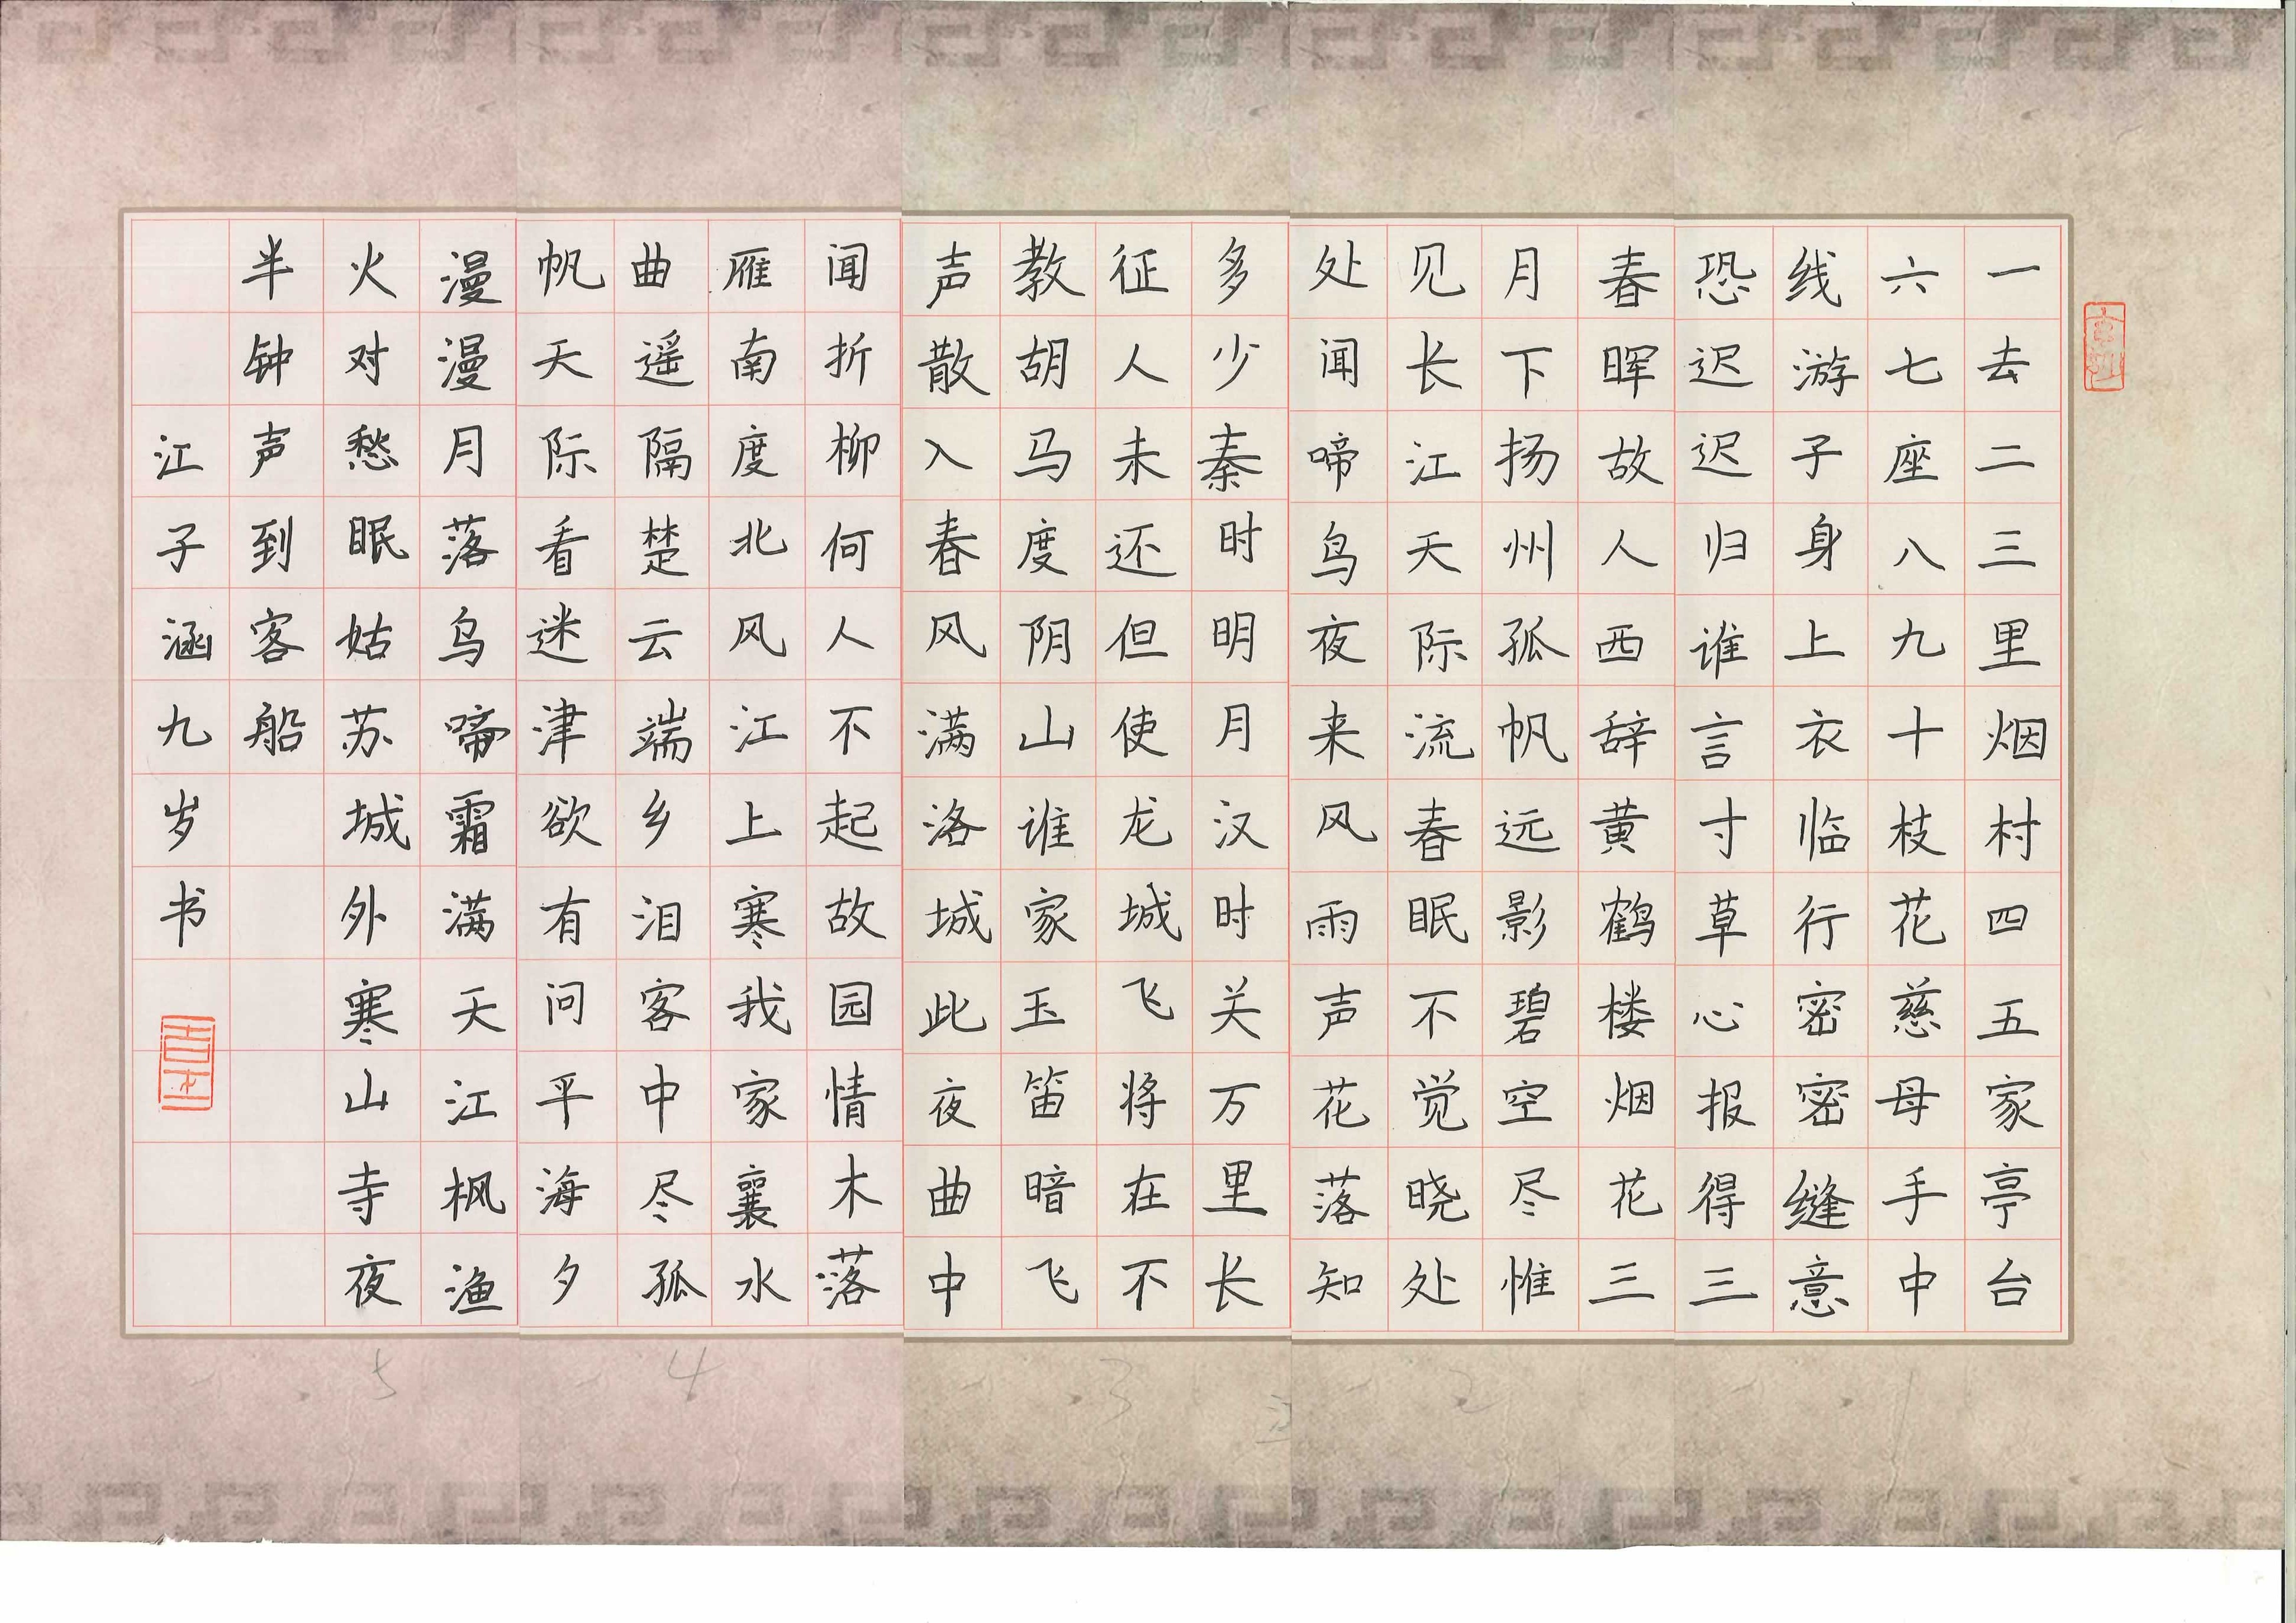 一去二三里烟村四五家亭台
六七座八九十枝花慈母手中
线游子身上衣临行密密缝意
恐迟迟归谁言寸草心报得三
春晖故人西辞黄鹤楼烟花三
月下扬州孤帆远影碧空尽惟
见长江天际流春眠不觉晓处
处闻啼鸟夜来风雨声花落知
多少秦时明月汉时关万里长
征人未还但使龙城飞将在不
教胡马度阴山谁家玉笛暗飞
声散入春风满洛城此夜曲中
闻折柳何人不起故园情木落
雁南度北风江上寒我家襄水
曲遥隔楚云端乡泪客中尽孤
帆天际看迷津欲有问平海夕
漫漫月落乌啼霜满天江枫渔
火对愁眠姑苏城外寒山寺夜
半钟声到客船
江子涵九岁书
1
2
3
4
5